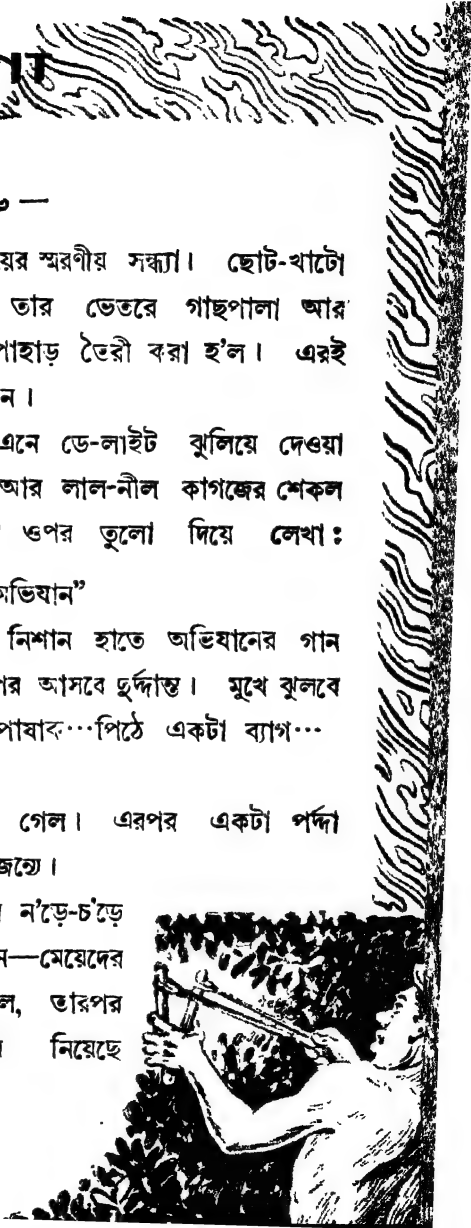 য়ের স্মরণীয় সন্ধ্যা। ছোট-খাটো
তার ভেতরে গাছপালা আর
পাহাড় তৈরী করা হ'ল। এরই
ন।
এনে ডে-লাইট ঝুলিয়ে দেওয়া
আর লাল-নীল কাগজের শেকল
ওপর তুলো দিয়ে লেখা :
অভিযান”
নিশান হাতে অভিযানের গান
পর আসবে দুর্দ্দান্ত। মুখে ঝুলবে
পোষাক···পিঠে একটা ব্যাগ···
গেল। এরপর একটা পর্দ্দা
জন্যে।
ন'ড়ে-চ'ড়ে
ন—মেয়েদের
ল, তারপর
নিয়েছে